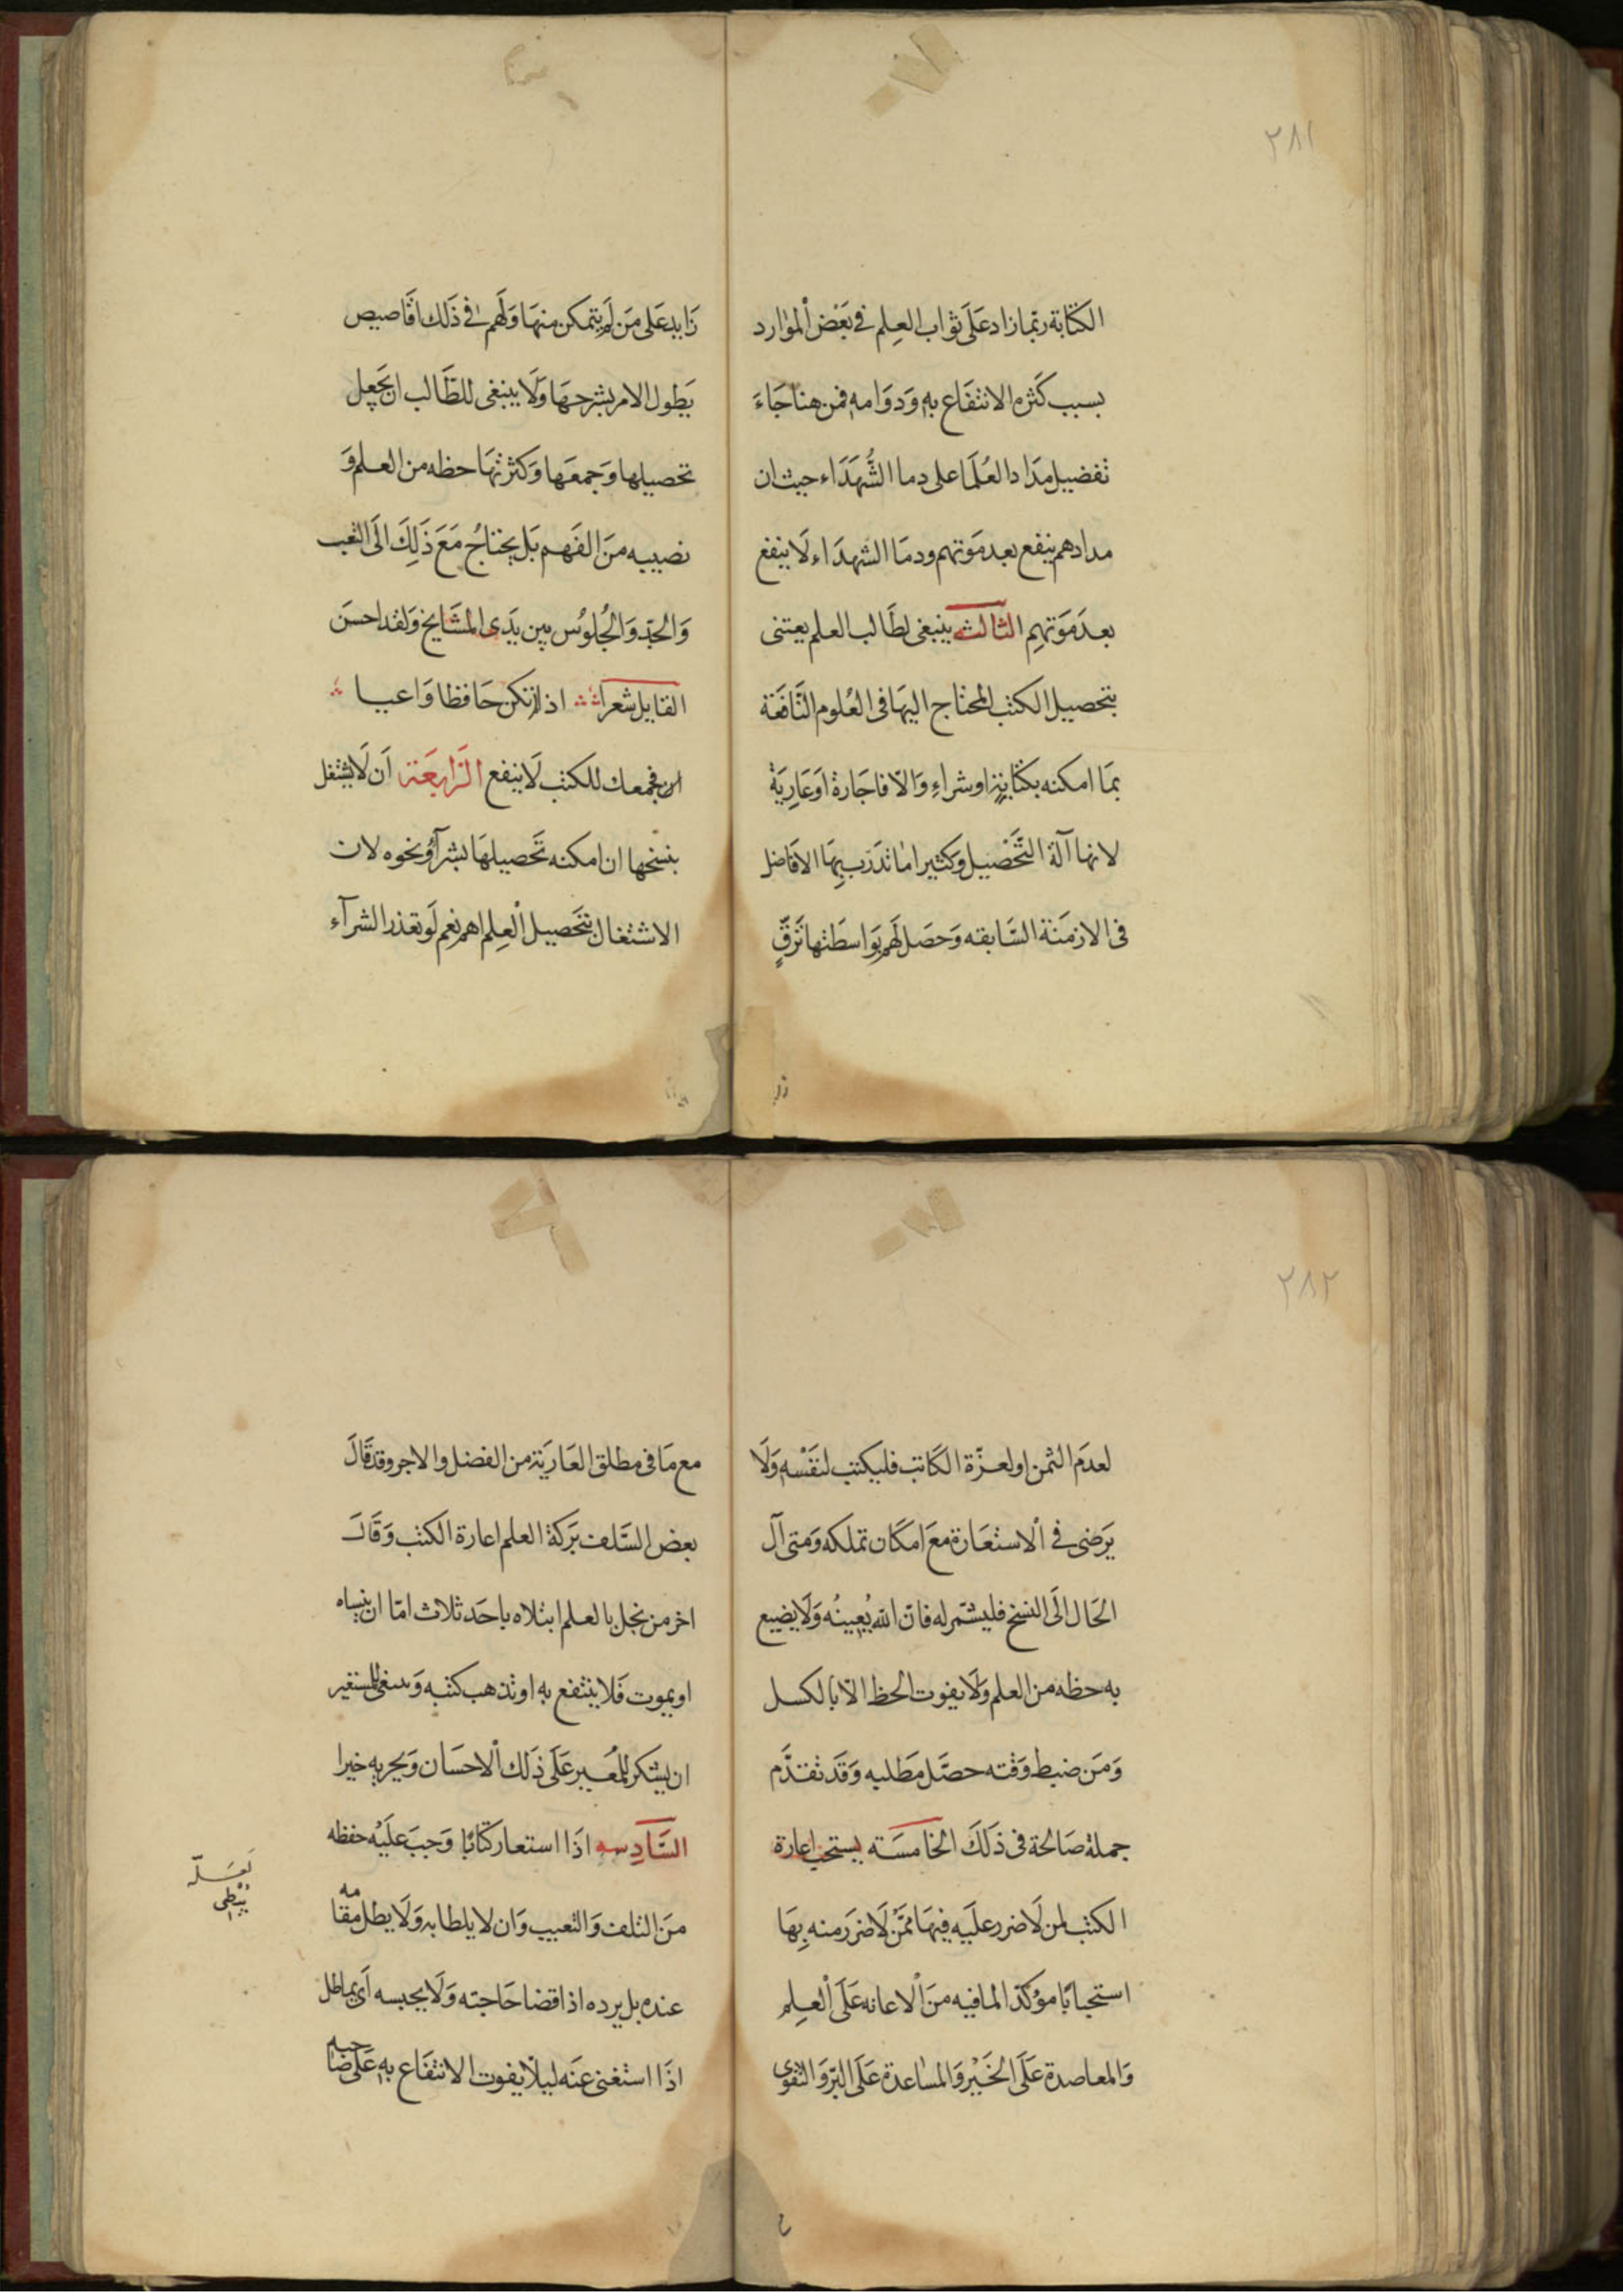 ٢٨١
الكتابة ربما زاد على ثواب العلم في بعض الموارد
بسبب كثره الانتفاع به ودوامه فمن هنا جاء
تفضيل مداد العلما على دما الشهداء حيث ان
مدادهم ينفع بعد موتهم ودما الشهداء لا ينفع
بعد موتهم الثالثه ينبغى لطالب العلم يعتنى
بتحصيل الكتب المحتاج اليها فى العلوم النافعة
بما امكنه بكتابة او شراء والا فاجارة او عارية
لانها آلة التحصيل وكثيرا ما تدرب بها الافاضل
فى الازمنة السابقه وحصل لهم بواسطتها ترق
زايد على من لم يتمكن منها ولهم في ذلك اقاصيص
يطول الامر بشرحها ولا ينبغى للطالب ان يجعل
تحصيلها وجمعها وكثرتها حظه من العلم و
نصيبه من الفهم بل يحتاج مع ذلك الى التعب
والجد والجلوس بين يدى المشايخ ولقد احسن
القايل شعرا اذا لم تكن حافظا واعيا
فجمعك للكتب لا ينفع الرابعة ان لا يشتغل
بنسخها ان امكنه تحصيلها بشرآء ونحوه لان
الاشتغال بتحصيل العلم اهم نعم لو تعذر الشرآء
٢٨٢
لعدم الثمن او لعزة الكاتب فليكتب لنفسه ولا
يرضى في الاستعارة مع امكان تملكه ومتى آل
الحال الى النسخ فليشمر له فان الله يعينه ولا يضيع
به حظه من العلم ولا يفوت الحظ الا بالكسل
ومن ضبط وقته حصل مطلبه وقد تقدم
جملة صالحة فى ذلك الخامسته يستحب اعارة
الكتب لمن لا ضرر عليه فيها ممن لا ضرر منه بها
استحبابا موكدا لما فيه من الاعانه على العلم
والمعاضدة على الخير والمساعدة على البر والتقوى
مع ما فى مطلق العارية من الفضل والاجر وقد قال
بعض السلف بركة العلم اعارة الكتب وقال
اخر من بخل بالعلم ابتلاه باحد ثلاث اما ان ينساه
او يموت فلا ينتفع به او تذهب كتبه وينبغى للمستعير
ان يشكر للمعير على ذلك الاحسان ويجزيه خيرا
السادسه اذا استعار كتابا وجب عليه حفظه
من التلف والتعيب وان لا يلطابه ولا يطل مقامه
عنده بل يرده اذا قضا حاجته ولا يحبسه اى يماطل
اذا استغنى عنه ليلا يفوت الانتفاع به على صاحبه
يبطى